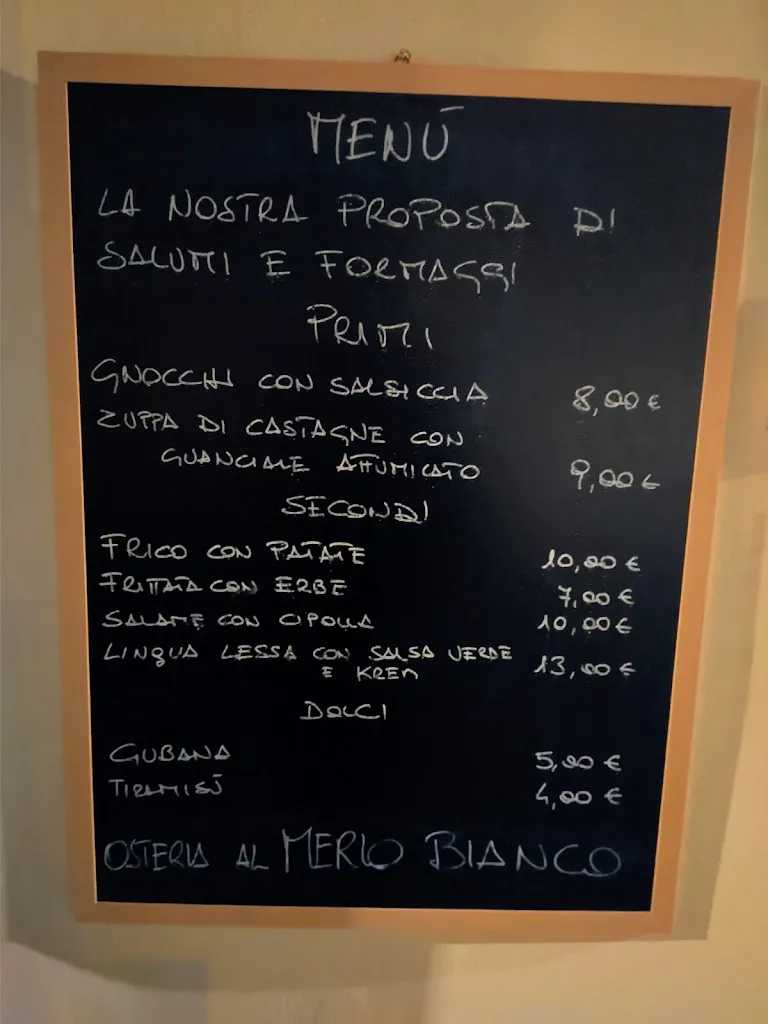 MENÚ
LA NOSTRA PROPOSTA DI
SALUMI E FORMAGGI
PRIMI
GNOCCHI CON SALSICCIA 8,00 €
ZUPPA DI CASTAGNE CON
GUANCIALE AFFUMICATO 9,00 €
SECONDI
FRICO CON PATATE 10,00 €
FRITTATA CON ERBE 7,00 €
SALAME CON CIPOLLA 10,00 €
LINGUA LESSA CON SALSA VERDE
E KREN 13,00 €
DOLCI
GUBANA 5,00 €
TIRAMISÚ 4,00 €
OSTERIA AL MERLO BIANCO